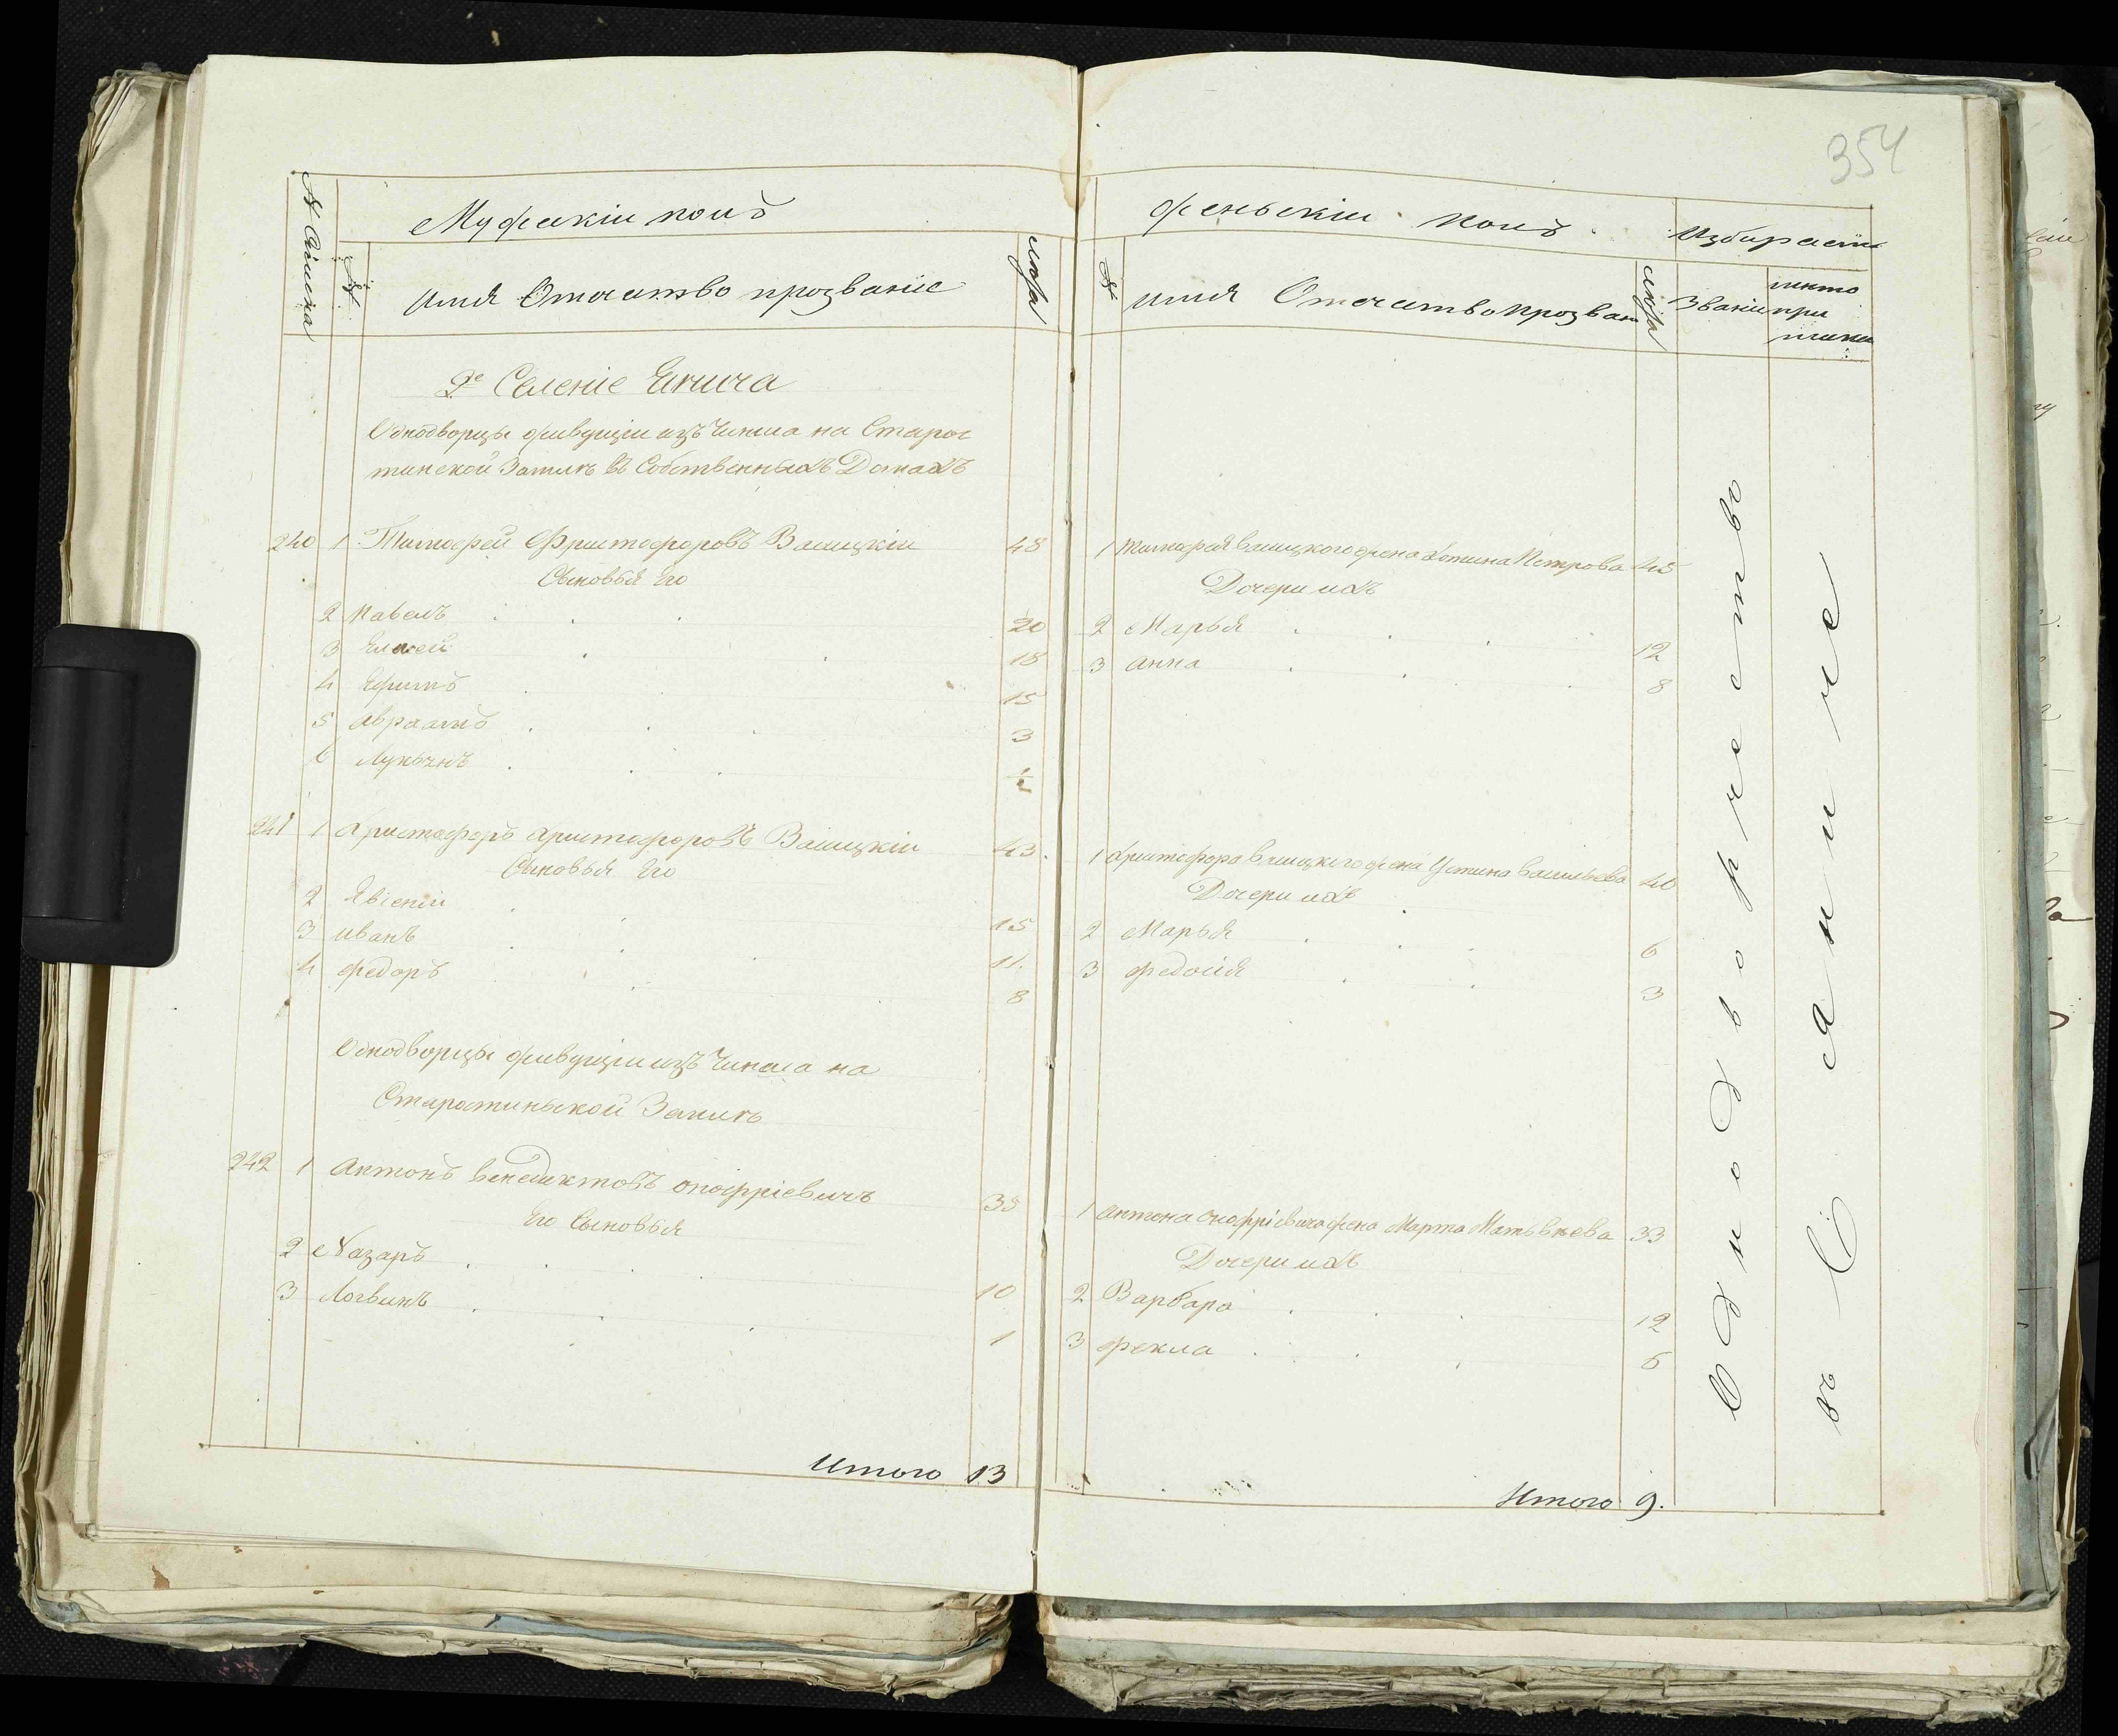 354
№ Списка
Мужскіи полъ
№
имя Отечество прозваніе
лѣта
2е Селеніе Ячича
Однодворцы живущіи изъ Чинша на Старос
тинской Землѣ въ Собственныхъ Домахъ
240 1 Тимофей Фристофоровъ Валицкіи 48
Сыновья Его
2 Павелъ 20
3 18
4 Ефимъ 15
5 Авраамъ 3
6 Лукьянъ ½
241 1 Христофоръ Христофоровъ Валицкіи 43
Сыновья Его
2 Явгеній 15
3 иванъ 11
4 федоръ 8
Однодворцы живущіи изъ Чинша на
Старостиньской Землѣ
242 1 Антонъ венедиктовъ онофріевичъ 35
Его Сыновья
2 Назаръ 10
3 Логвинъ 1
Итого 13
Женьскіи полъ
Избираемые
№
имя Отечество прозван
лѣта
Званіи
мѣсто
при
писки
1 Тимофея валицкого жена Хотина Петрова 45
Дочери ихъ
2 Марья 12
3 Анна 8
1 Христофора валицкого жена Устина васильева 40
Дочери ихъ
2 Марья 6
3 федосія 3
1 Антона Онофріевича жена Марта Матьвѣева 33
Дочери ихъ
2 Варвара 12
3 фекла 6
Итого 9.
Однодворчество